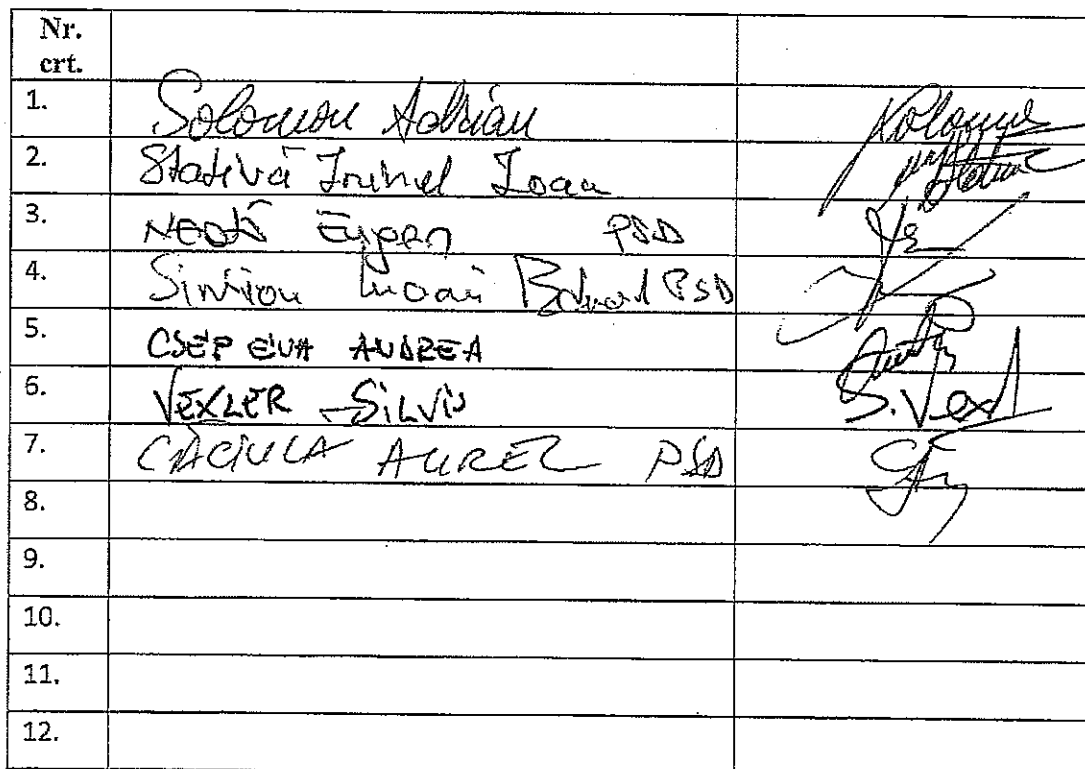 Nr.
crt.
1. Solomon Adrian
2. Stativă Irinel Ioan
3. Eugen PSD
4. Simion Lucian Eduard PSD
5. CSEP EVA ANDREA
6. VEXLER SILVIU S. Vexl
7. CĂCIULA AUREL PSD
8.
9.
10.
11.
12.